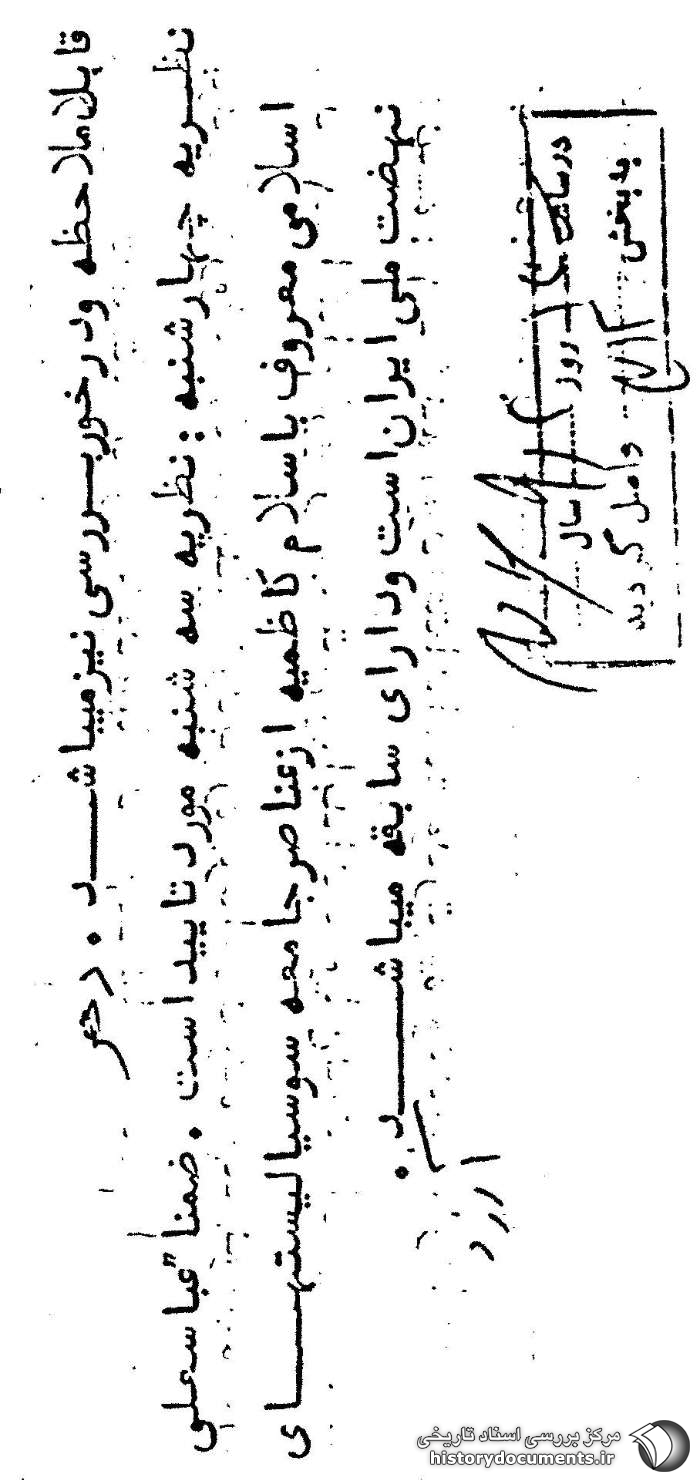 قابل ملاحظه و در خور بررسی نیز میباشد . دهر
نظریه چهارشنبه : نظریه سه شنبه مورد تایید است . ضمنا" عباسعلی
اسلامی معروف باسلام کاظمیه از عناصر جامعه سوسیالیستهای
نهضت ملی ایران است و دارای سابقه میباشد .
در ساعت
روز
سال
به بخش
واصل گردید
مرکز بررسی اسناد تاریخی
historydocuments.ir